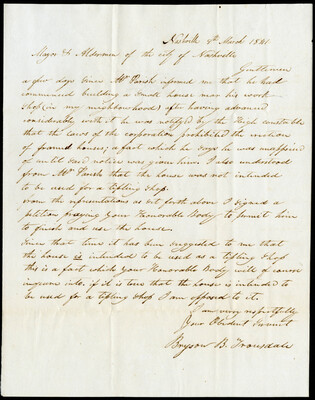 Nashville 8th March 1841
Mayor & Aldermen of the city of Nashville
Gentlemen
a few days since Mr Parish informed me that he had
commenced building a small house near his work
Shop (in my neighbourhood) after having advanced
considerably with it he was notifyed by the High constable
that the Laws of the corporation prohibited the erection
of framed houses; a fact which he says he was unapprised
of until said notice was given him. I also understood
from Mr Parish that the house was not intended
to be used for a tipling shop.
From the representations as set forth above I signed a
petition praying your Honourable Body to permit him
to finish and use the house.
Since that time it has been suggested to me that
the house is intended to be used as a tipling shop
this is a fact which your Honorable Body will of course
inquire into. if it is true that the house is intended to
be used for a tipling shop I am opposed to it.
I am very respectfully
Your Obedient Servant
Bryson B. Trousdale